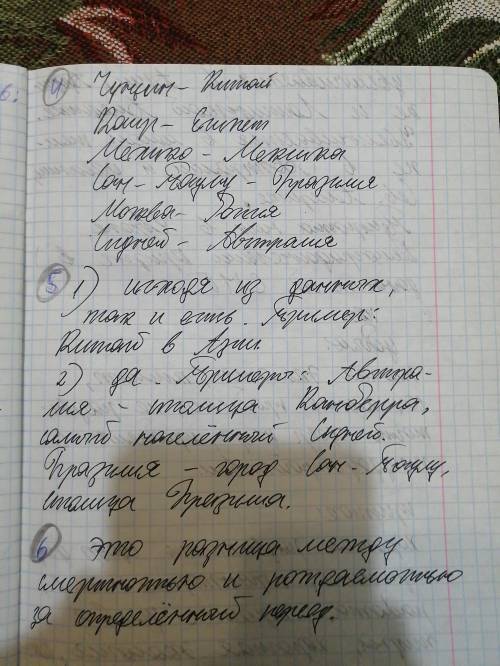 6.
4 Чунцин - Китай
Каир - Египет
Мехико - Мексика
Сан-Паулу - Бразилия
Москва - Россия
Сидней - Австралия
5 1) исходя из данных,
так и есть. Пример:
Китай в Азии.
2) да. Примеры: Австра-
лия - столица Канберра,
самый населённый Сидней.
Бразилия - город Сан-Паулу,
столица Бразилиа.
6 это разница между
смертностью и рождаемостью
за определённый период.